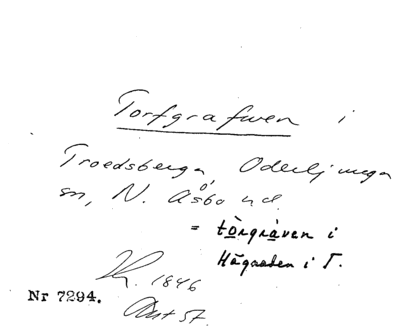 Torfgrafven i
Troedsberga, Oderljunga
sn, N. Åsbo hd.
= tòrgràven i
Hägnaden i T.
Kg. 1846
Nr 7294.
Avst 57.